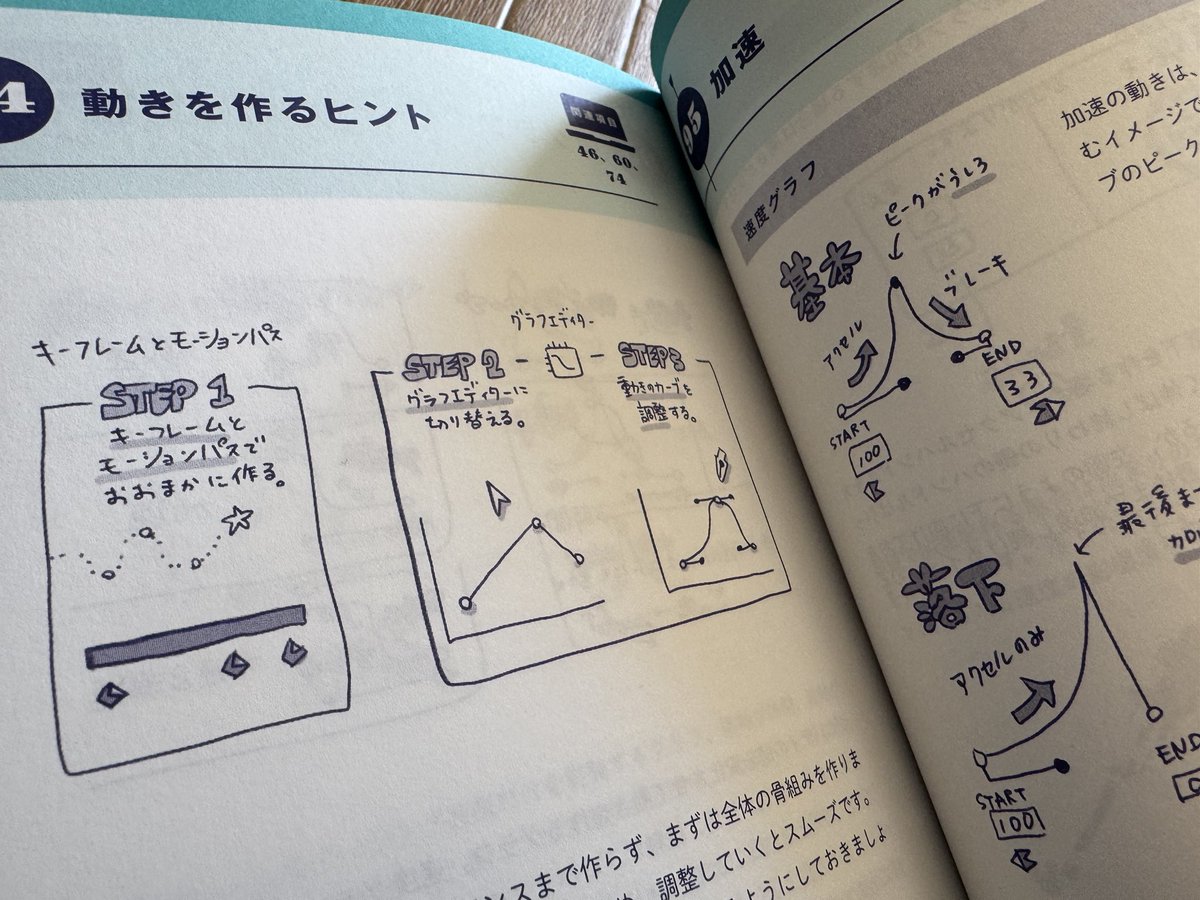 4
動きを作るヒント
関連項目
46、60、
74
キーフレームとモーションパス
STEP 1
キーフレームと
モーションパスで
おおまかに作る。
グラフエディター
STEP 2
グラフエディターに
切り替える。
STEP 3
動きのカーブを
調整する。
ンスまで作らず、まずは全体の骨組みを作りま
調整していくとスムーズです。
ようにしておきましょ
95
加速
加速の動きは、
むイメージで
ブのピーク
速度グラフ
基本
ピークがうしろ
アクセル
ブレーキ
START
100
END
33
落下
最後ま
アクセルのみ
START
100
END